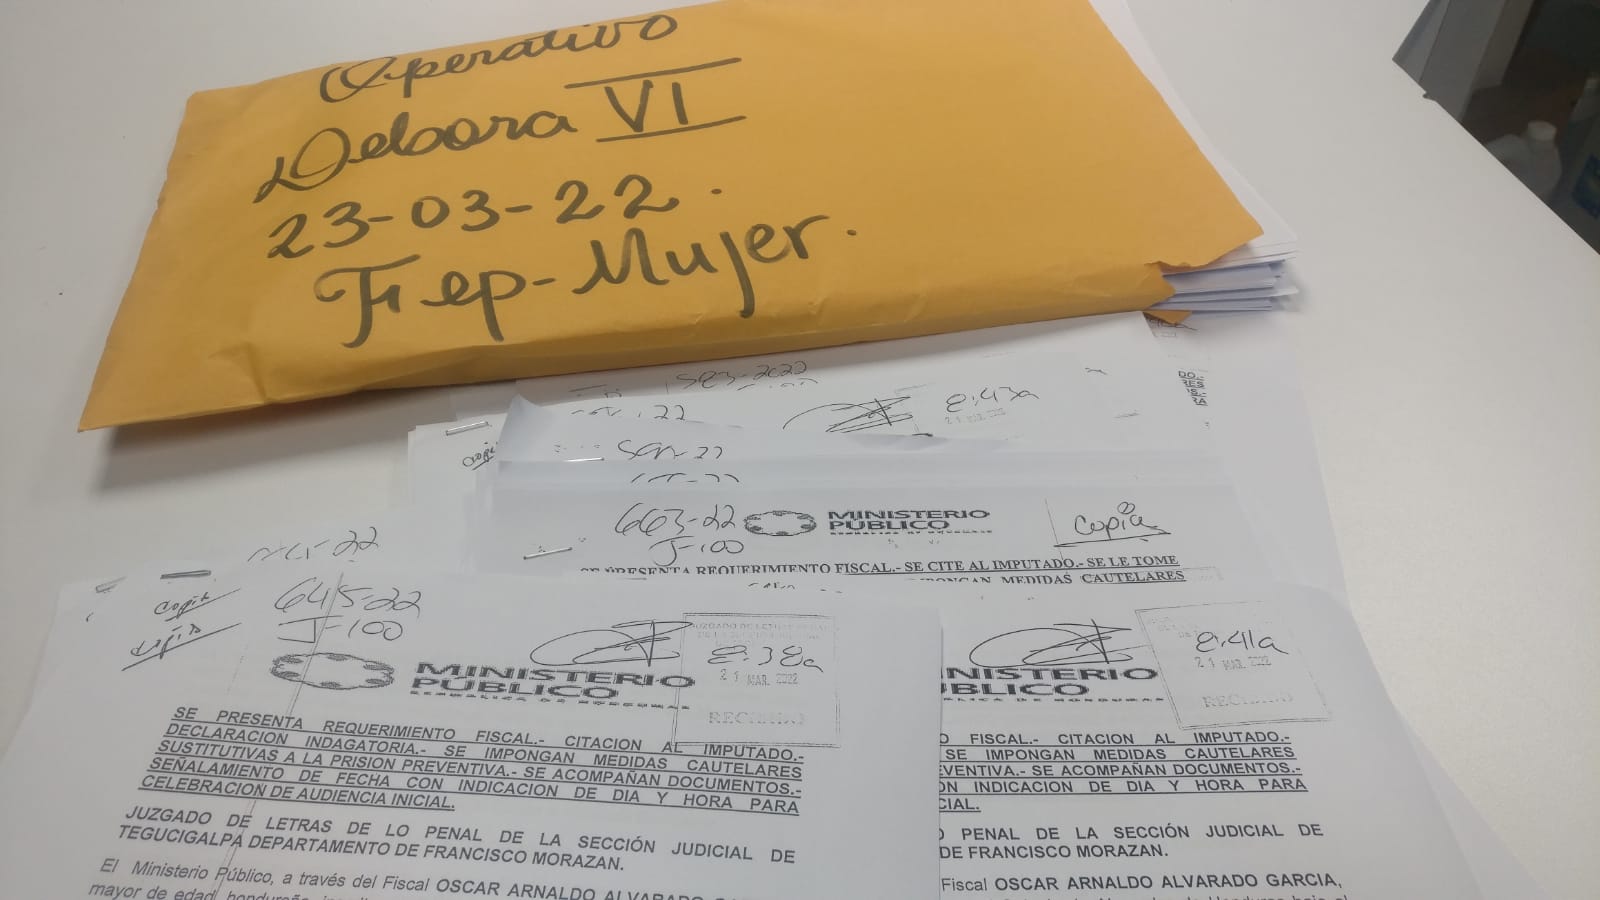 Operativo
Debora VI
23-03-22.
Fep-Mujer.
8:43a
21 MAR. 2022
663-22
J-100
MINISTERIO
PÚBLICO
Copia
SE PRESENTA REQUERIMIENTO FISCAL.- SE CITE AL IMPUTADO.- SE LE TOME
MEDIDAS CAUTELARES
Copia
Copia
645-22
J-100
MINISTERIO
PÚBLICO
REPUBLICA DE HONDURAS
8:38a
21 MAR. 2022
RECIBIDO
SE PRESENTA REQUERIMIENTO FISCAL.- CITACION AL IMPUTADO.-
DECLARACION INDAGATORIA.- SE IMPONGAN MEDIDAS CAUTELARES
SUSTITUTIVAS A LA PRISION PREVENTIVA.- SE ACOMPAÑAN DOCUMENTOS.-
SEÑALAMIENTO DE FECHA CON INDICACION DE DIA Y HORA PARA
CELEBRACION DE AUDIENCIA INICIAL.
JUZGADO DE LETRAS DE LO PENAL DE LA SECCIÓN JUDICIAL DE
TEGUCIGALPA DEPARTAMENTO DE FRANCISCO MORAZAN.
El Ministerio Público, a través del Fiscal OSCAR ARNALDO
mayor de edad
8:41a
21 MAR. 2022
RECIBIDO
NISTERIO
BLICO
O FISCAL.- CITACION AL IMPUTADO.-
SE IMPONGAN MEDIDAS CAUTELARES
VENTIVA.- SE ACOMPAÑAN DOCUMENTOS.-
ON INDICACION DE DIA Y HORA PARA
CIAL.
O PENAL DE LA SECCIÓN JUDICIAL DE
DE FRANCISCO MORAZAN.
Fiscal OSCAR ARNALDO ALVARADO GARCIA,